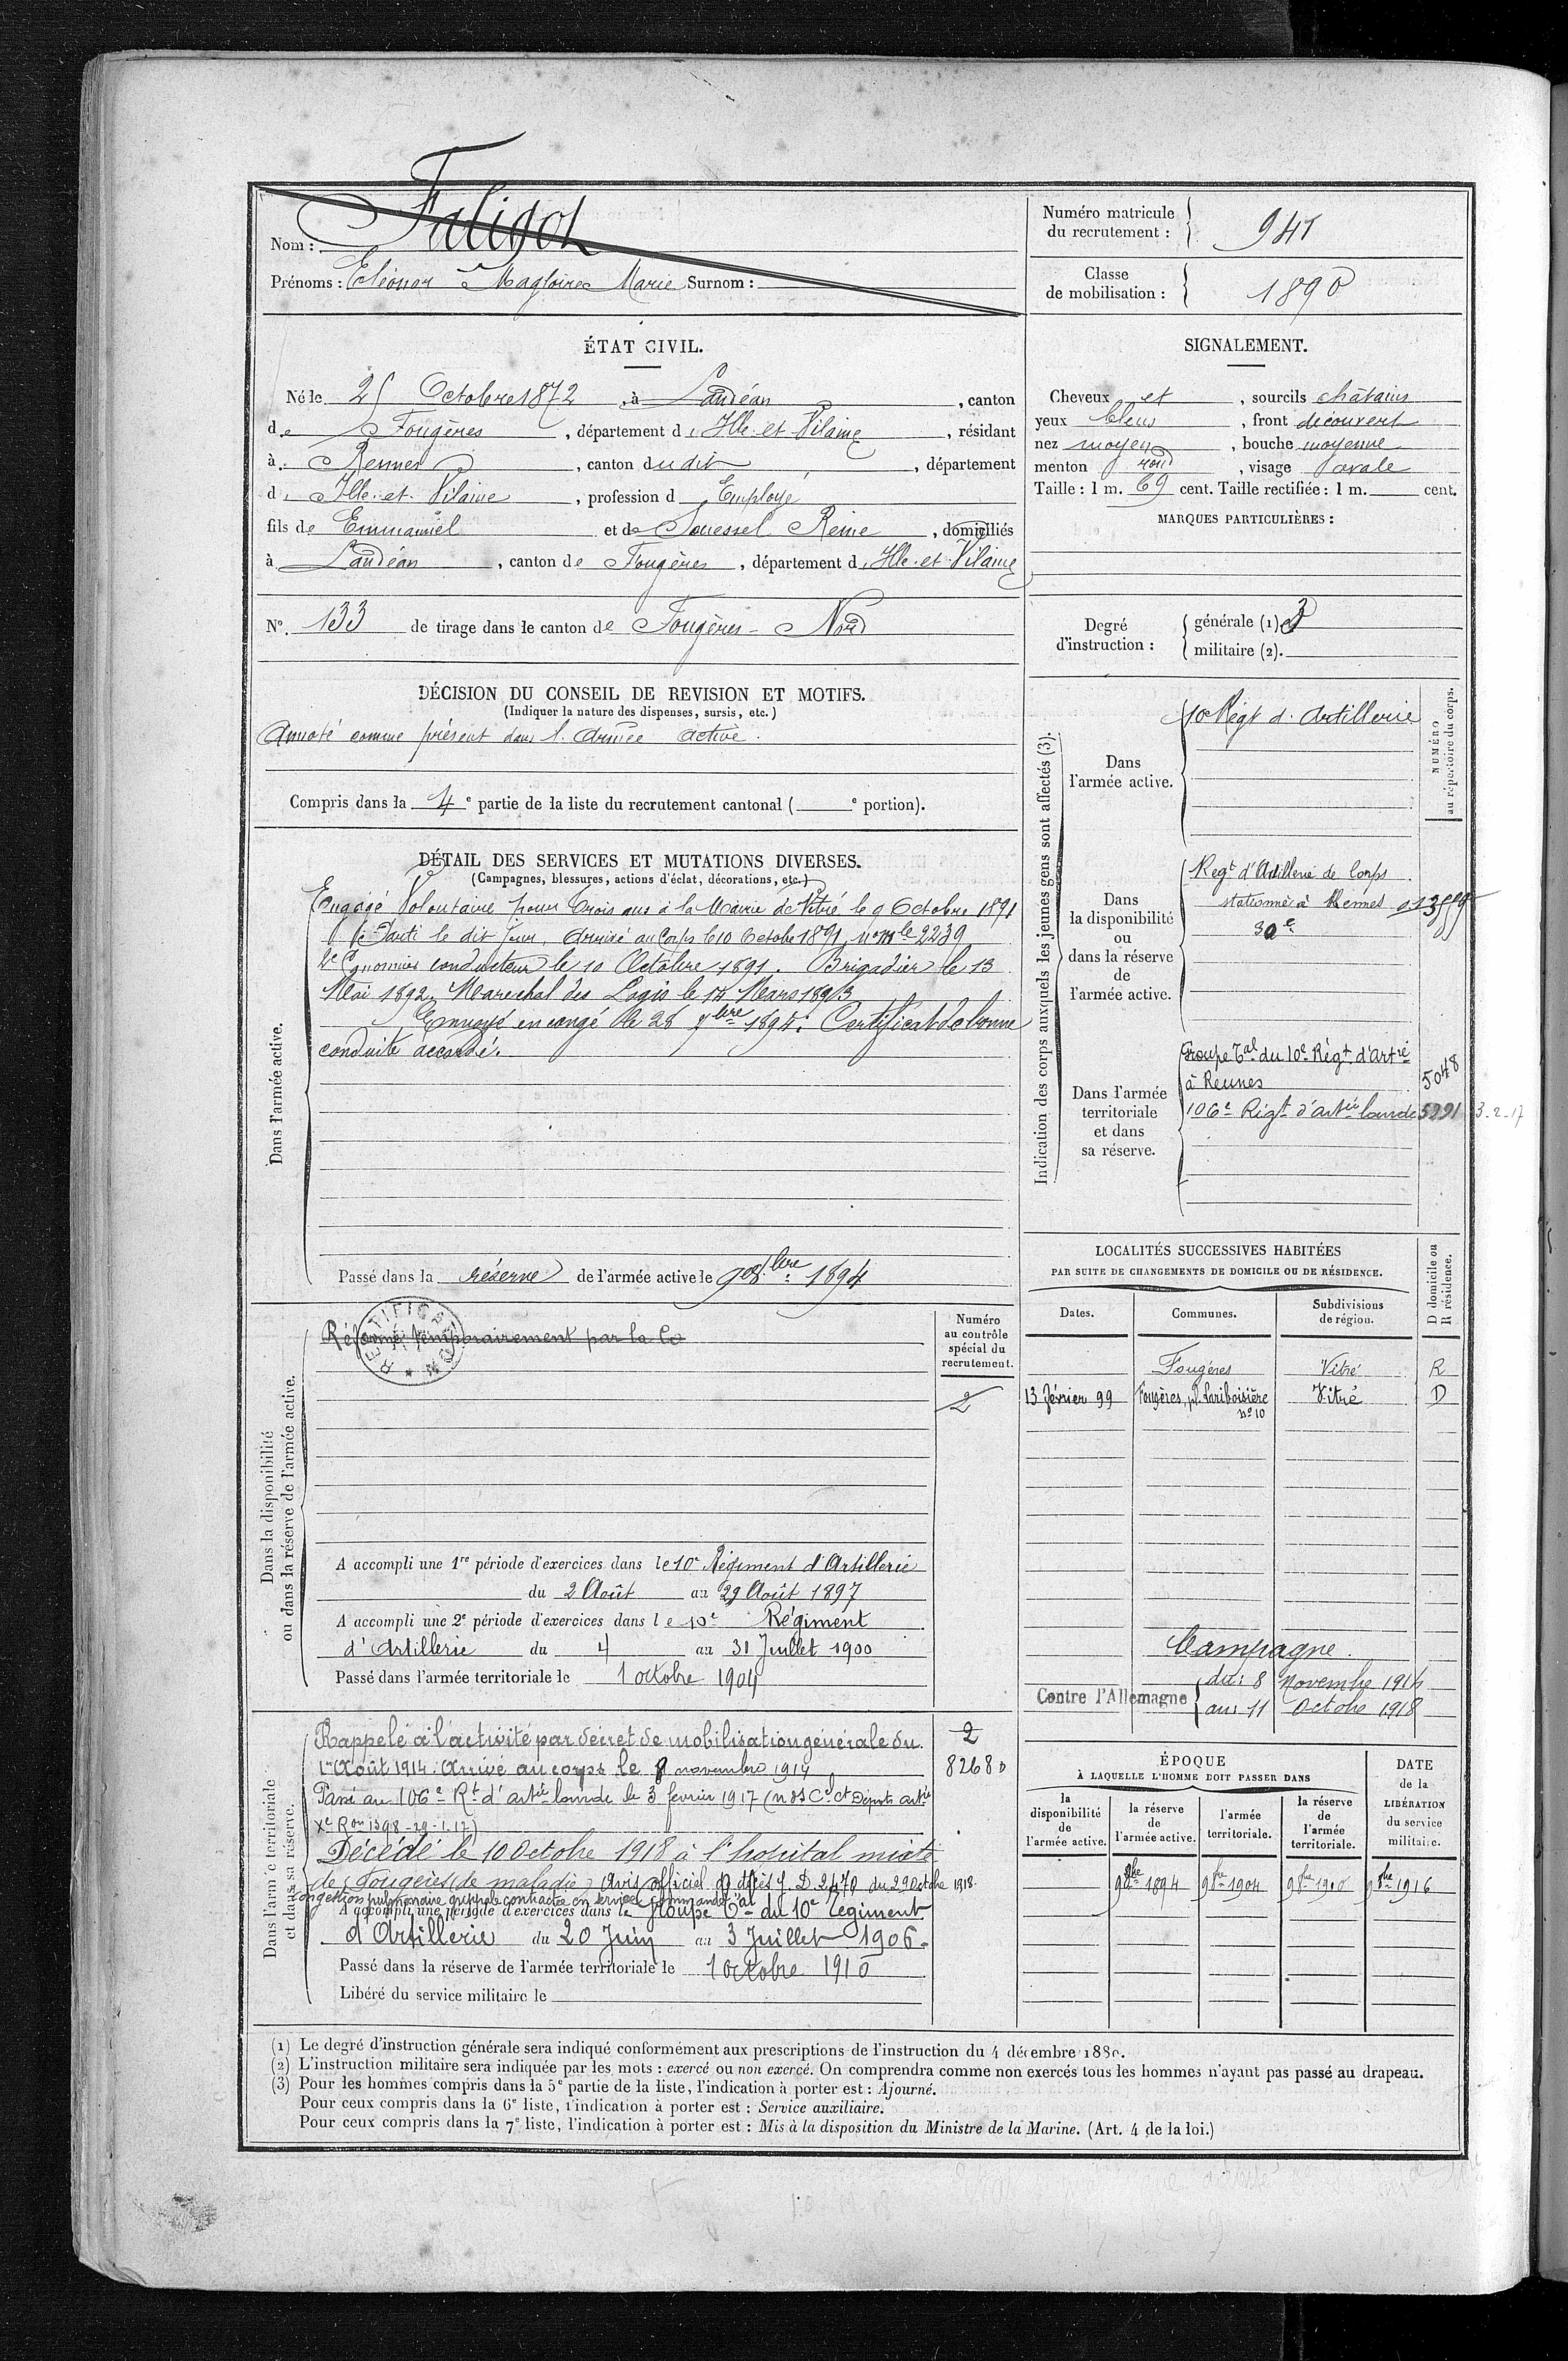 Nom : Faligot
Prénoms : Eléonor Magloire Marie Surnom :
Numéro matricule du recrutement : 941
Classe de mobilisation : 1890
ÉTAT CIVIL.
Né le 25 Octobre 1872, à Landéan, canton
de Fougères, département d'Ille-et-Vilaine, résidant
à Rennes, canton du dit, département
d'Ille-et-Vilaine, profession d'Employé
fils de Emmanuel et de Souessel Reine, domiciliés
à Landéan, canton de Fougères, département d'Ille-et-Vilaine
N° 133 de tirage dans le canton de Fougères-Nord
SIGNALEMENT.
Cheveux et, sourcils châtains
yeux bleus, front découvert
nez moyen, bouche moyenne
menton rond, visage ovale
Taille : 1 m. 69 cent. Taille rectifiée : 1 m. cent.
MARQUES PARTICULIÈRES :
Degré d'instruction :
générale (1) 3
militaire (2).
DÉCISION DU CONSEIL DE REVISION ET MOTIFS.
(Indiquer la nature des dispenses, sursis, etc.)
Annoté comme présent dans l'Armée active.
Compris dans la 4e partie de la liste du recrutement cantonal ( e portion).
DÉTAIL DES SERVICES ET MUTATIONS DIVERSES.
(Campagnes, blessures, actions d'éclat, décorations, etc.)
Dans l'armée active.
Engagé Volontaire pour trois ans à la Mairie de Vitré le 9 Octobre 1891
Parti le dit jour, arrivé au Corps le 10 Octobre 1891, n° mle 2239
2e Canonnier conducteur le 10 Octobre 1891. Brigadier le 13
Mai 1892, Marechal des Logis le 14 Mars 1893
Envoyé en congé le 28 7bre 1894. Certificat de bonne
conduite accordé.
Passé dans la réserve de l'armée active le 9 8bre 1894
Indication des corps auxquels les jeunes gens sont affectés (3).
NUMÉRO au répertoire du corps.
Dans l'armée active.
10e Régt d'Artillerie
Dans la disponibilité ou dans la réserve de l'armée active.
Regt d'Artillerie de Corps
stationné à Rennes
30e
Dans l'armée territoriale et dans sa réserve.
Groupe Tal du 10e Régt d'Artie
à Rennes 5048
106e Régt d'artie lourde 5291 3-2-17
LOCALITÉS SUCCESSIVES HABITÉES
PAR SUITE DE CHANGEMENTS DE DOMICILE OU DE RÉSIDENCE.
Dates. Communes. Subdivisions de région. D domicile ou R résidence.
Fougères Vitré R
13 février 99 Fougères, pl. Lariboisière n° 10 Vitré D
Campagne
Contre l'Allemagne
du : 8 Novembre 1914
au : 11 Octobre 1918
Dans la disponibilité ou dans la réserve de l'armée active.
Numéro au contrôle spécial du recrutement.
2
Réformé temporairement par la Co
A accompli une 1re période d'exercices dans le 10e Régiment d'Artillerie
du 2 Août au 29 Août 1897
A accompli une 2e période d'exercices dans le 10e Régiment
d'Artillerie du 4 au 31 Juillet 1900
Passé dans l'armée territoriale le 1 octobre 1904
Dans l'armée territoriale et dans sa réserve.
2
8268
Rappelé à l'activité par décret de mobilisation générale du
1er Août 1914. Arrivé au corps le 8 novembre 1914
Passé au 106e Rt d'artie lourde le 3 février 1917
Xe Ron 1398-29-1-17)
Décédé le 10 Octobre 1918 à l'hôpital mixte
de Fougères (de maladie) Avis officiel D 2470 du 29 Octobre 1918.
congestion pulmonaire grippale contractée en service commandé
A accompli une période d'exercices dans le Groupe Tal du 10e Régiment
d'Artillerie du 20 Juin au 3 Juillet 1906.
Passé dans la réserve de l'armée territoriale le 1 octobre 1910
Libéré du service militaire le
ÉPOQUE
À LAQUELLE L'HOMME DOIT PASSER DANS
la disponibilité de l'armée active.
la réserve de l'armée active.
l'armée territoriale.
la réserve de l'armée territoriale.
DATE de la LIBÉRATION du service militaire.
9 8bre 1894 9 8bre 1904 9 8bre 1910 9 8bre 1916
(1) Le degré d'instruction générale sera indiqué conformément aux prescriptions de l'instruction du 4 décembre 1889.
(2) L'instruction militaire sera indiquée par les mots : exercé ou non exercé. On comprendra comme non exercés tous les hommes n'ayant pas passé au drapeau.
(3) Pour les hommes compris dans la 5e partie de la liste, l'indication à porter est : Ajourné.
Pour ceux compris dans la 6e liste, l'indication à porter est : Service auxiliaire.
Pour ceux compris dans la 7e liste, l'indication à porter est : Mis à la disposition du Ministre de la Marine. (Art. 4 de la loi.)